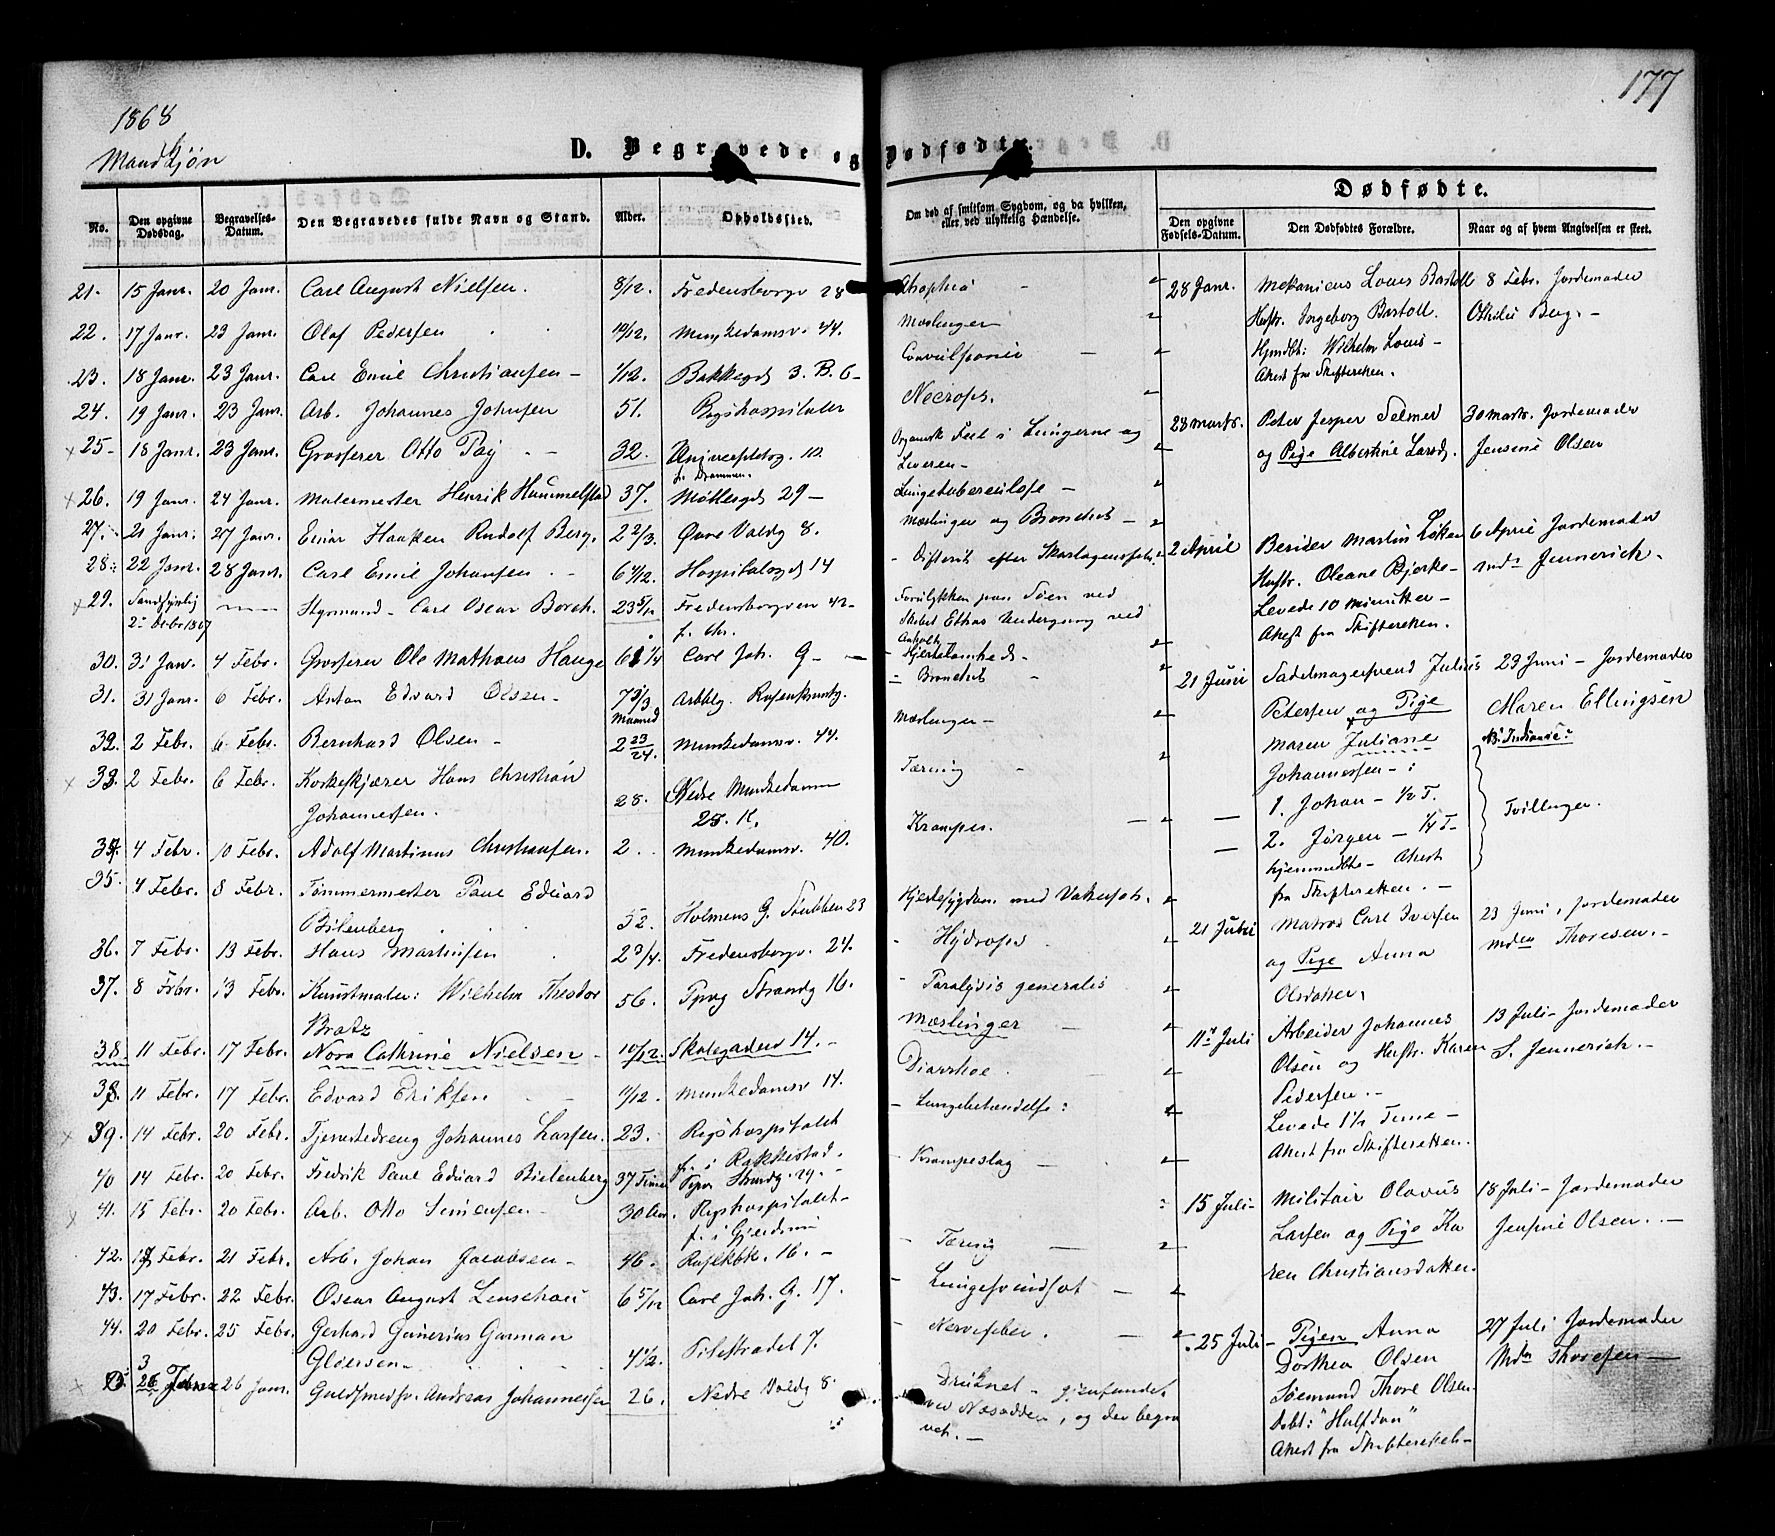 1868
177
Mandkjøn
D. Begravede og Dødfødte.
No. Den opgivne Dødsdag. Begravelses-Datum. Den Begravedes fulde Navn og Stand. Alder. Opholdssted. Om død af smitsom Sygdom, og da hvilken, eller ved ulykkelig Hændelse.
21. 15 Janr. 20 Janr. Carl August Nielsen. 8/12. Fredensborgv 28 Atrophia
22. 17 Janr. 23 Janr. Olaf Pedersen 10/12. Munkedamsv. 44. Mæslinger
23. 18 Janr. 23 Janr. Carl Emil Christiansen 1/12. Bakkegd 3. B. 6 Convulsioner
24. 19 Janr. 23 Janr. Arb. Johannes Johnsen 51. Rigshospitalet Necrosis.
25 18 Janr. 23 Janr. Grosserer Otto Pay 32. Universitetsg. 10. Organisk Feil i Lungerne og
fr. Drammen. Leveren
26. 19 Janr. 24 Janr. Malermester Henrik Hummelstad 37. Møllergd 29 Lungetuberculose
27. 21 Janr. 27 Janr. Einar Haaken Rudolf Berg. 2 2/3. Øvre Voldg 8. Mæslinger og Bronchit
28. 22 Janr. 28 Janr. Carl Emil Johansen 6 11/12. Hospitalsgd 14 Difterit efter Skarlagensfeb.
29. Sandsynlig Styrmand Carl Oscar Borch. 23 5/12 Fredensborgvn 42 Forulykket paa Søen ved
2 Decbr 1867 f. Chr. Skibet Ethas Undergang ved
Anholt
30. 31 Janr. 4 Febr. Grosserer Ole Mathæus Hauge 61 1/4 Carl Joh. G Hjertelamhed
31. 31 Janr. 6 Febr. Anton Edvard Olsen 7 2/3 Maaned Arbbg. Rosenkrantzg. Bronchit
32. 2 Febr. 6 Febr. Bernhard Olsen 2 23/24. Munkedamsv. 44. Mæslinger
33. 2 Febr. 6 Febr. Korkeskjærer Hans Christian 28. Nedre Munkedamm Tæring
Johannessen. 25. K.
34. 4 Febr. 10 Febr. Adolf Martinus Christiansen. 2. Munkedamsv. 40. Krampe.
35. 4 Febr. 8 Febr. Tømmermester Paul Eduard 52. Holmens G. Stubben 23 Hjertesygdom med Vatersot.
Bilenberg
36. 7 Febr. 13 Febr. Hans Martinsen 2 3/4. Fredensborgv. 24. Hydrops
37. 8 Febr. 13 Febr. Kunstmaler: Wilhelm Theodor 56. Tpvg Strandg 16. Paralysis generalis
Bratz
38. 11 Febr. 17 Febr. Nora Cathrine Nielsen 10/12. Skolegaden 14. Mæslinger
38. 11 Febr. 17 Febr. Edvard Eriksen 11/12. Munkedamsv 14. Diarrhoe.
39. 14 Febr. 20 Febr. Tjenestedreng Johannes Larsen. 23. Rigshospitalet Lungebetændelse:
fr. i Rakkestad.
40 14 Febr. 20 Febr. Fredrik Paul Eduard Bielenberg 37 Timer Tpv. Strandg. 29. Krampeslag
41. 15 Febr. 20 Febr. Arb. Otto Simensen 30 Aar. Rigshospitalet
f. i Gjerdrum
42. 17 Febr. 21 Febr. Arb. Johan Jacobsen 46. 16. Tæring
43. 17 Febr. 22 Febr. Oscar August Lenschau 6 5/12 Carl Joh. G. 17. Lungesvindsot
44. 20 Febr. 25 Febr. Gerhard Gunerius Garman 4 1/2. Pilestrædet 7. Nervefeber.
Gldersen
26 Janr. Guldsmedsv. Andreas Johannessen 26. Nedre Voldg 8. Druknet gjenfundet
ved Næsodden, og der begra
vet.
Dødfødte.
Den opgivne Fødsels-Datum. Den Dødfødtes Forældre. Naar og af hvem Angivelsen er skeet.
28 Janr. Mekanicus Louis Bartoll 8 Febr. Jordemoder
Hustr. Ingeborg Bartoll. Othilie Berg.
Hjmdbt: Wilhelm Louis
Attest fra Skifteretten.
28 Marts. Peter Jesper Selmer 30 Marts. Jordemoder
og Pige Albertine Larsd. Jensine Olsen
2 April Berider Martin Løken 6 April Jordemoder
Hustr. Oleane Bjerke Mdm Jennerich.
Levede 10 Minutter
Attest fra Skifteretten.
21 Juni Sadelmagersvend Julius 23 Juni Jordemoder
Petersen og Pige Maren Ellingsen
Maren Juliane
Johannessen:
1. Johan 1/2 T. Tvillinger.
2. Jørgen 1/4 T
hjemmedbte Attest
fra Skifteretten.
21 Juli Matros Carl Iversen 23 Juni, Jordemoder
og Pige Anna Mdm Thoresen.
Olsdatter,
11te Juli Arbeider Johannes 13 Juli Jordemoder
Olsen og Hustr. Karen S. Jennerich.
Pedersen.
Levede 1 1/2 Time
Attest fra Skifteretten.
15 Juli Militair Olavus 18 Juli Jordemoder
Larsen og Pige Ka Jensine Olsen.
ren Christiansdatter.
25 Juli Pigen Anna 27 Juli Jordemoder
Dorthea Olsen Mdm Thoresen
Sømand Thore Olsen.
Døbt: "Halfdan"
Attest fra Skifteretten